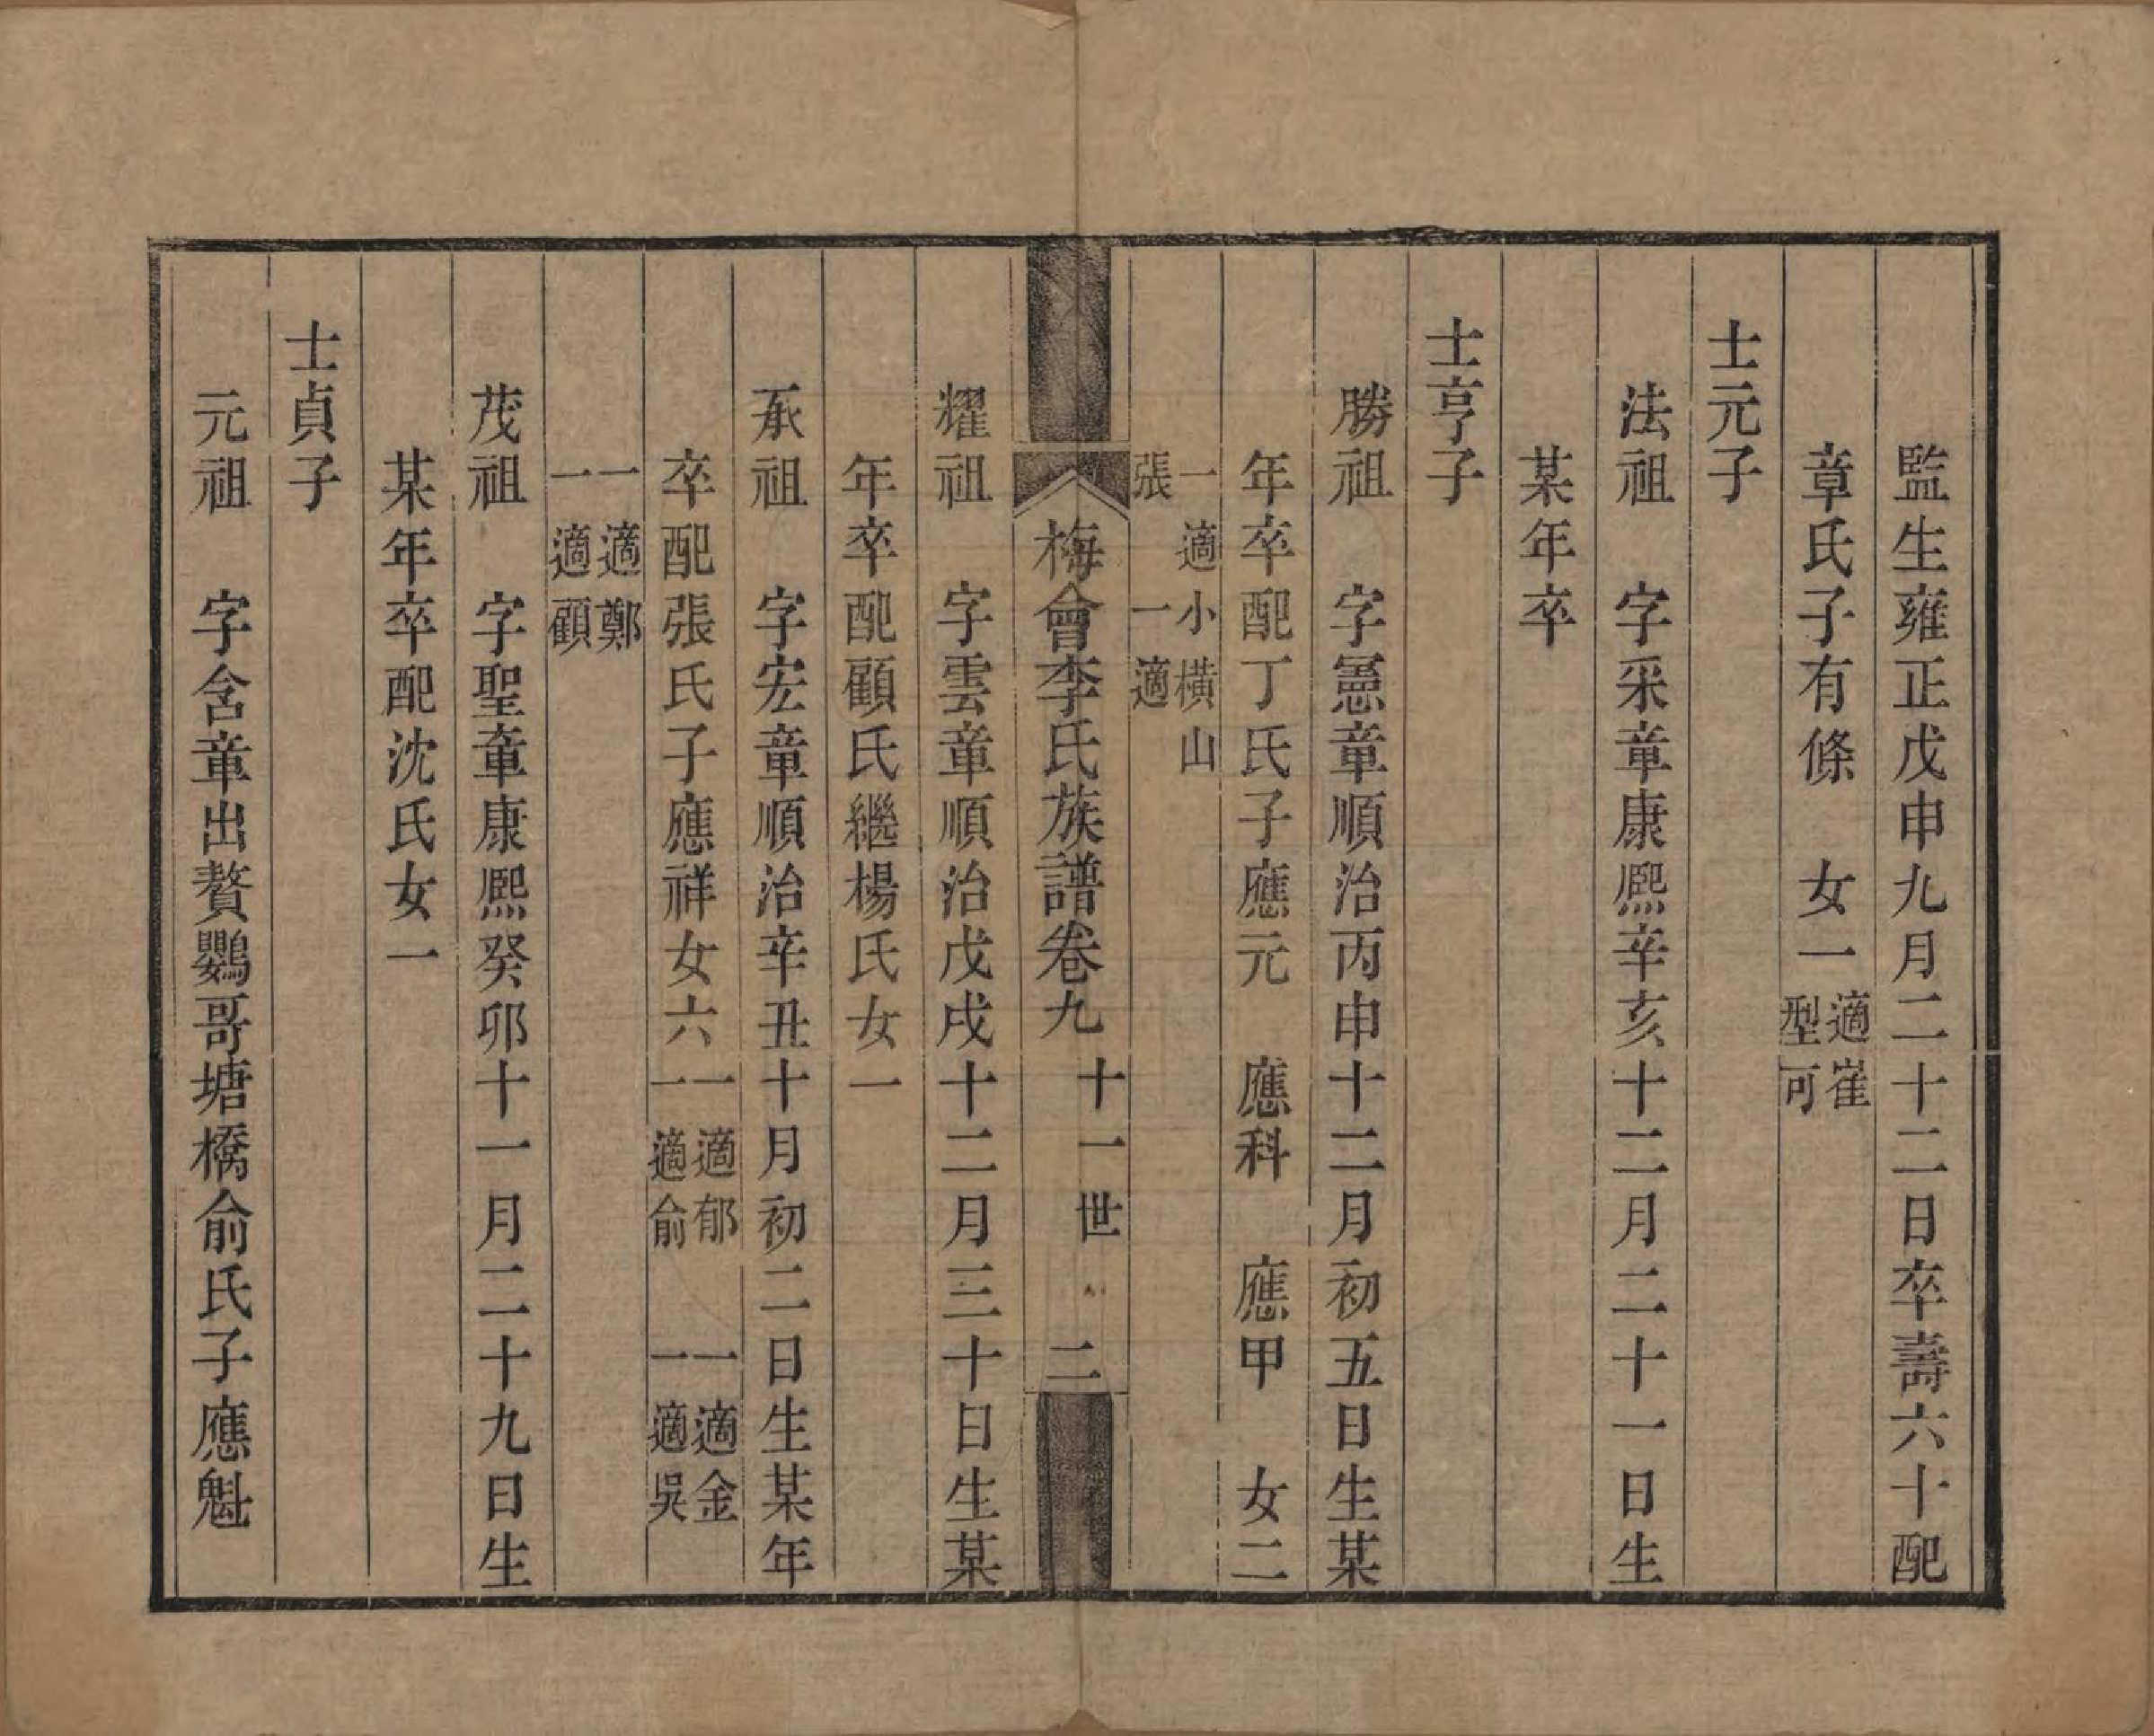 監生雍正戊申九月二十二日卒壽六十配
章氏子有條　女一適崔型可
士元子
法祖　字采章康熙辛亥十二月二十一日生
某年卒
士亨子
勝祖　字憲章順治丙申十二月初五日生某
年卒配丁氏子應元　應科　應甲　女二
一適小橫山張　一適
梅會李氏族譜卷九　十一世　二
耀祖　字雲章順治戊戌十二月三十日生某
年卒配顧氏繼楊氏女一
承祖　字宏章順治辛丑十月初二日生某年
卒配張氏子應祥女六一適郁　一適金一適俞　一適吳
一適鄭一適顧
茂祖　字聖章康熙癸卯十一月二十九日生
某年卒配沈氏女一
士貞子
元祖　字含章出贅鸚哥塘橋俞氏子應魁